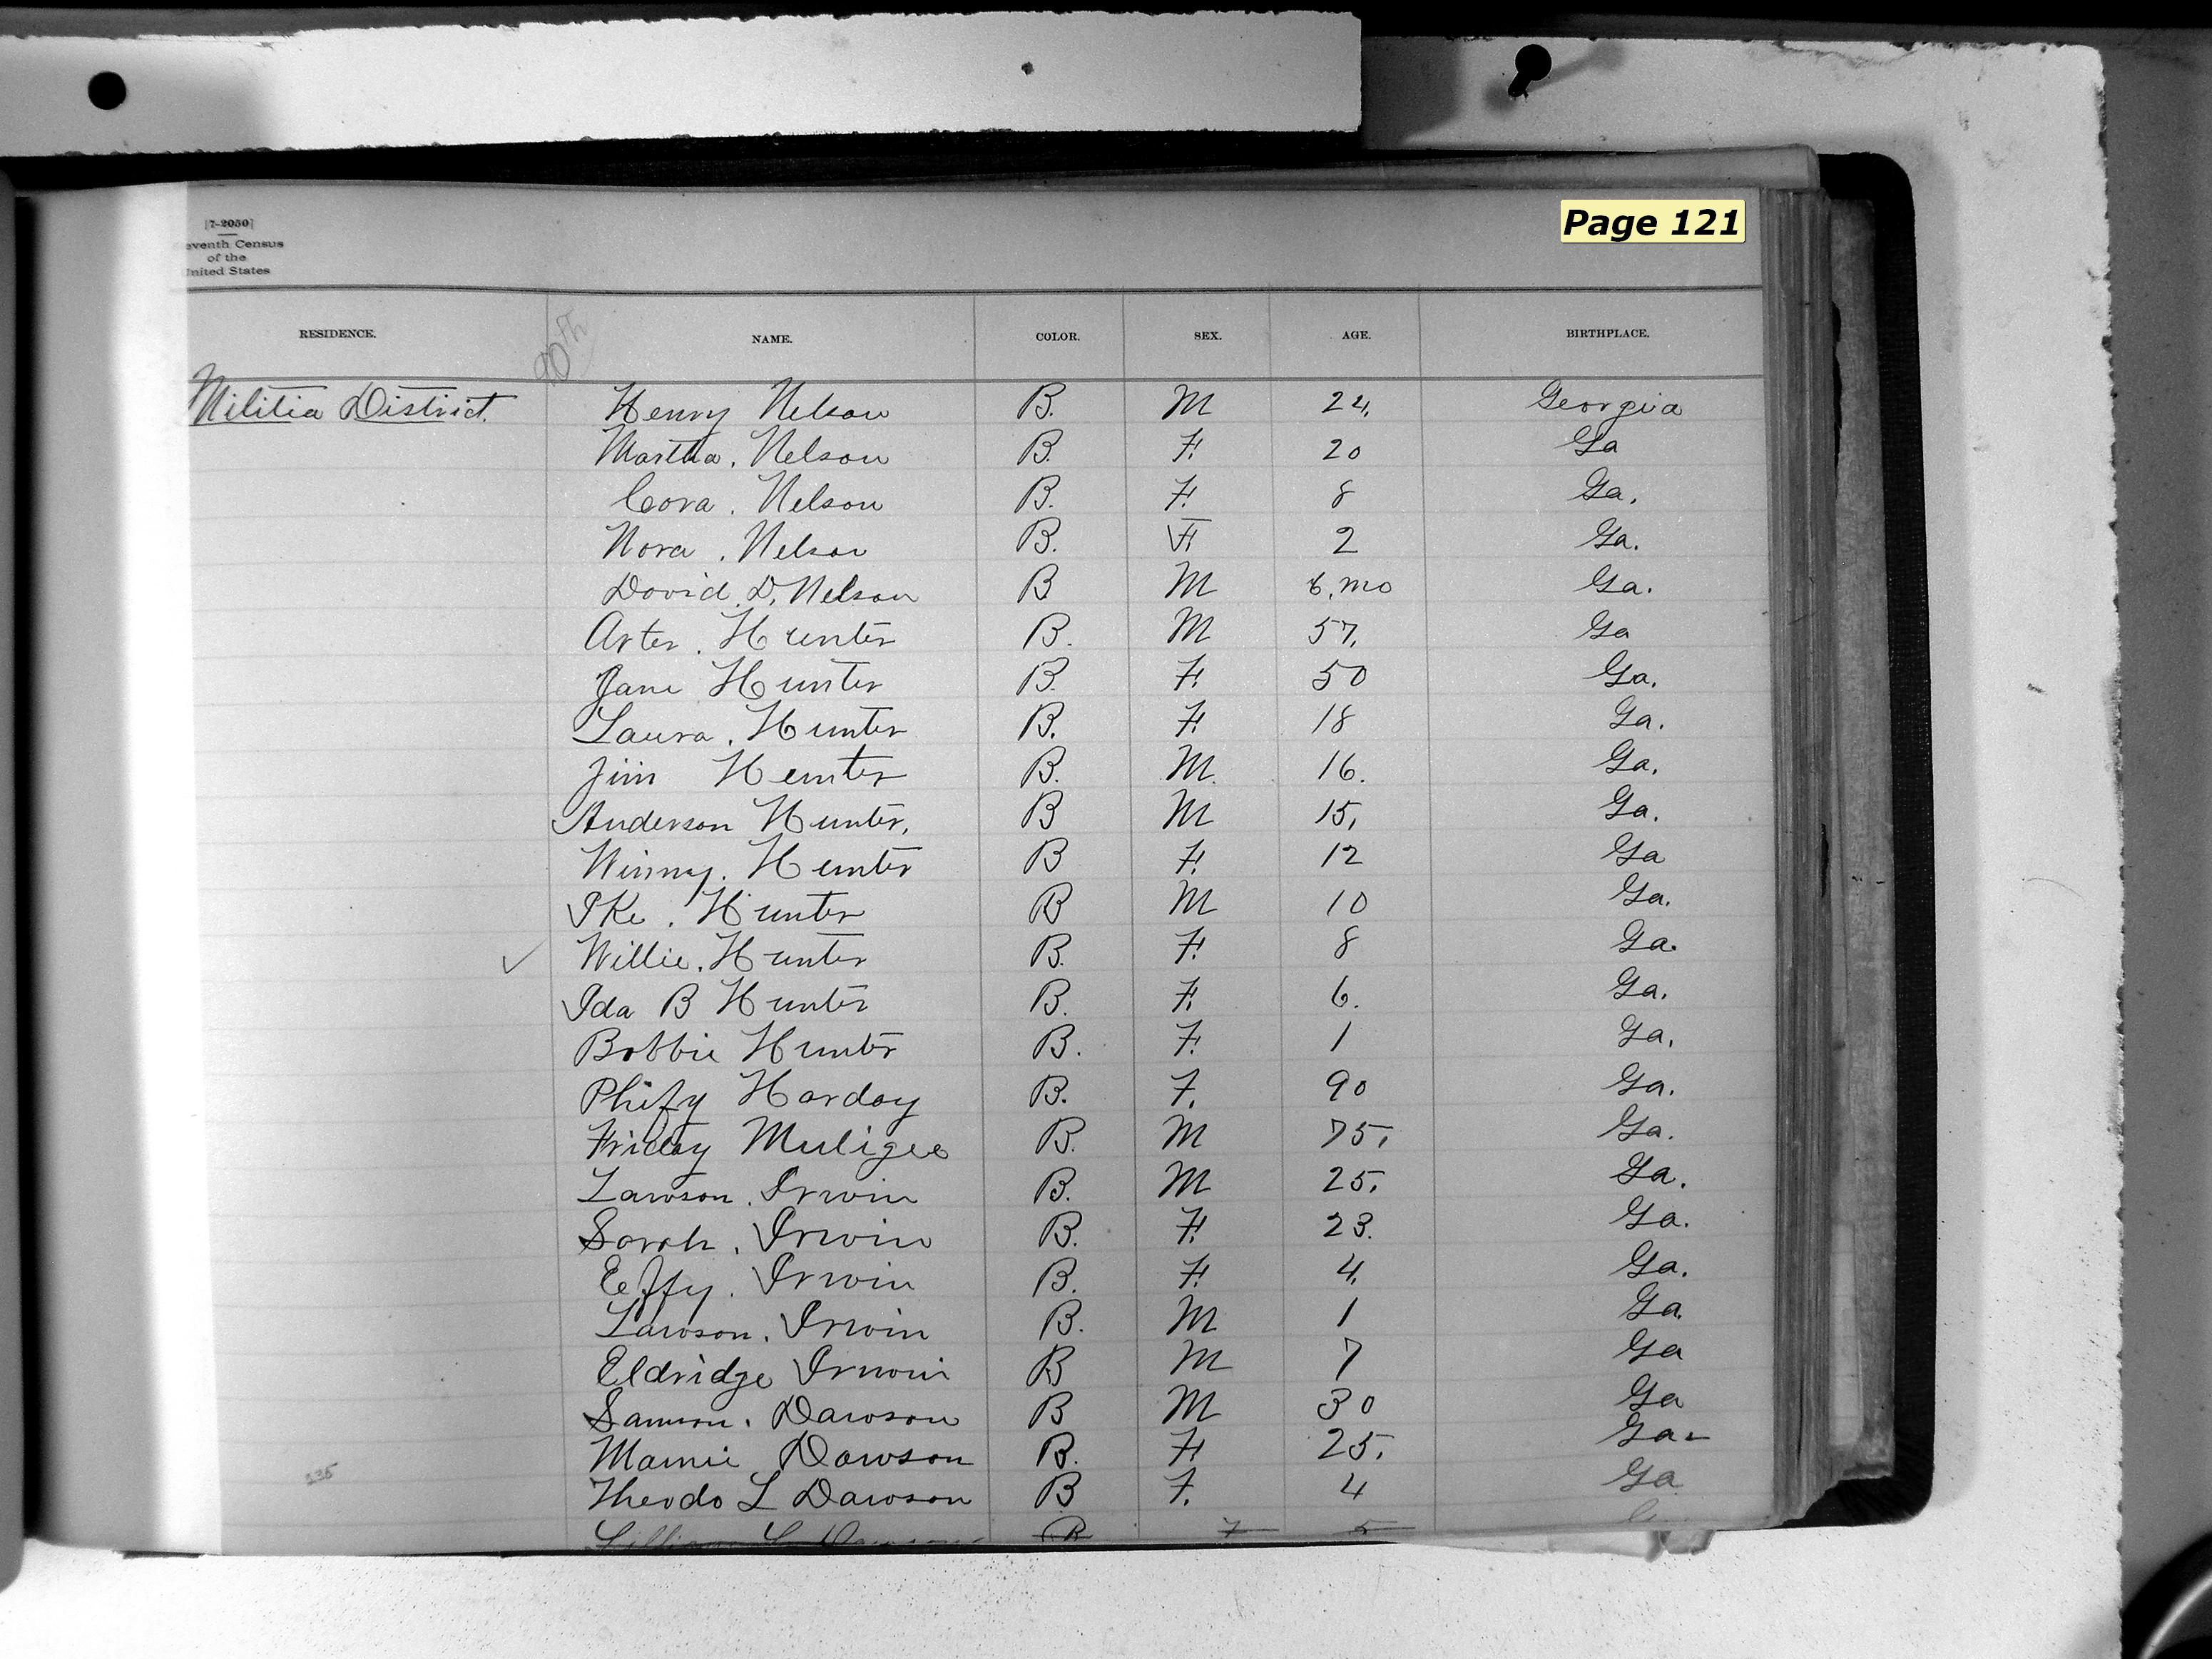 Page 121
[7-2050]
eventh Census
of the
nited States
RESIDENCE. NAME. COLOR. SEX. AGE. BIRTHPLACE.
90th
Militia District. Henry Nelson B. M 24, Georgia
Martha. Nelson B. F. 20 Ga
Cora. Nelson B. F. 8 Ga.
Nora. Nelson B. F. 2 Ga.
David. D. Nelson B M 6, mo Ga.
Arter. Hunter B. M 57, Ga
Jane Hunter B. F. 50 Ga.
Laura. Hunter B. F. 18 Ga.
Jim Hunter B. M. 16. Ga.
Anderson Hunter, B M 15, Ga.
Winny. Hunter B F. 12 Ga
Ike. Hunter B M 10 Ga.
Willie. Hunter B. F. 8 Ga.
Ida B Hunter B. F. 6. Ga.
Bobbie Hunter B. F. 1 Ga.
Phify Harday B. F. 90 Ga.
Friday Muligee B. M 75, Ga.
Lawson. Irwin B. M 25, Ga.
Sarah. Irwin B. F. 23. Ga.
Eeffy. Irwin B. F. 4, Ga.
Lawson. Irwin B. M 1 Ga.
Eldridge Irwin B M 7 Ga
Samson. Dawson B M 30 Ga
Mamie Dawson B. F. 25, Ga.
235 Theodo L Dawson B F. 4 Ga
B F 5